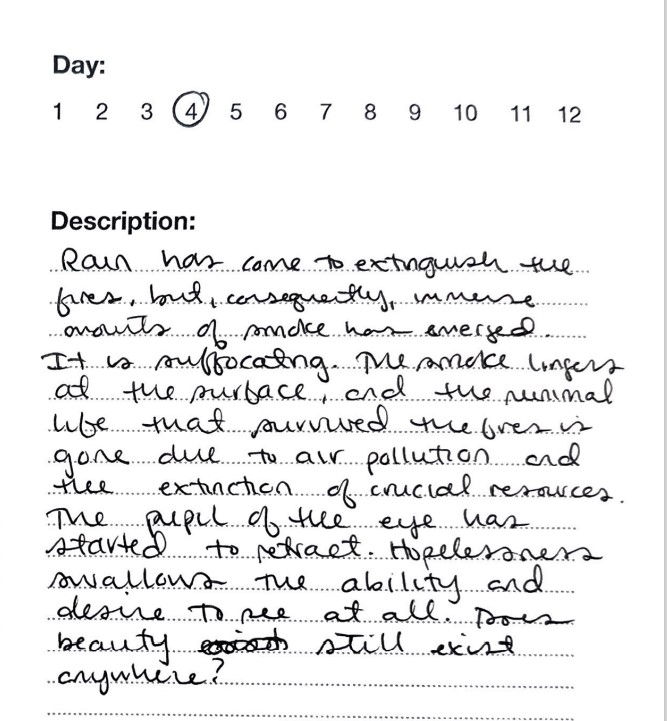 Day:
1 2 3 4 5 6 7 8 9 10 11 12
Description:
Rain has come to extinguish the
fires, but, consequently, immense
amounts of smoke has emerged.
It is suffocating. The smoke lingers
at the surface, and the minimal
life that survived the fires is
gone due to air pollution and
the extinction of crucial resources.
The pupil of the eye has
started to retract. Hopelessness
swallows the ability and
desire to see at all. Does
beauty still exist
anywhere?